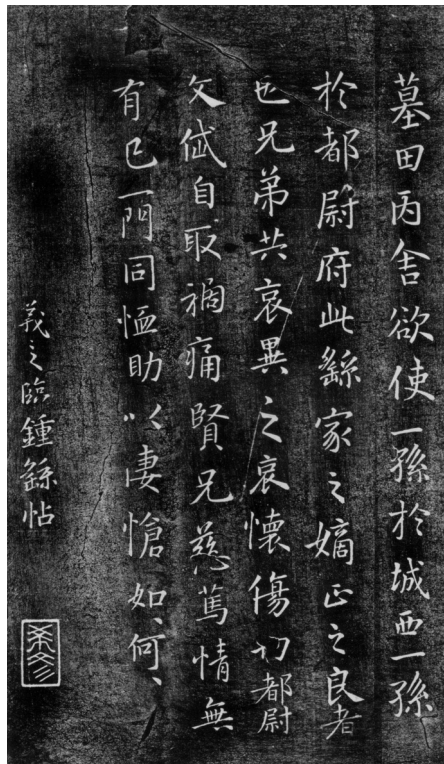 墓田丙舍欲使一孫於城西一孫
於都尉府此繇家之嫡正之良者
也兄弟共哀異之哀懷傷切都尉
文岱自取禍痛賢兄慈篤情無
有已一門同恤助以悽愴如何如何
羲之臨鍾繇帖